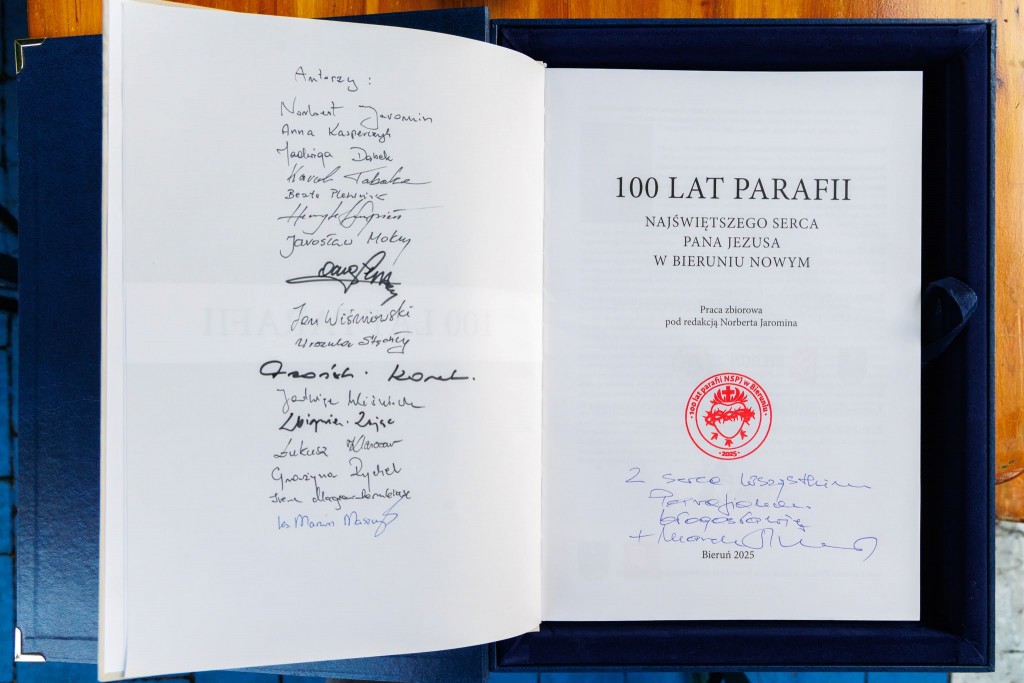 Autorzy:
Norbert Jaromin
Anna Kasperczyk
Jadwiga Dąbek
Tabaka
Beata
Henryk
Jarosław Mokry
Jan Wiśniowski
Urszula
Jadwiga
Zbigniew Zając
Łukasz
Grażyna Rychel
Irena
ks Marcin
100 LAT PARAFII
NAJŚWIĘTSZEGO SERCA
PANA JEZUSA
W BIERUNIU NOWYM
Praca zbiorowa
pod redakcją Norberta Jaromina
100 lat parafii NSPJ w Bieruniu
2025
Z serca wszystkim
Parafianom
błogosławię
+ Marek
Bieruń 2025